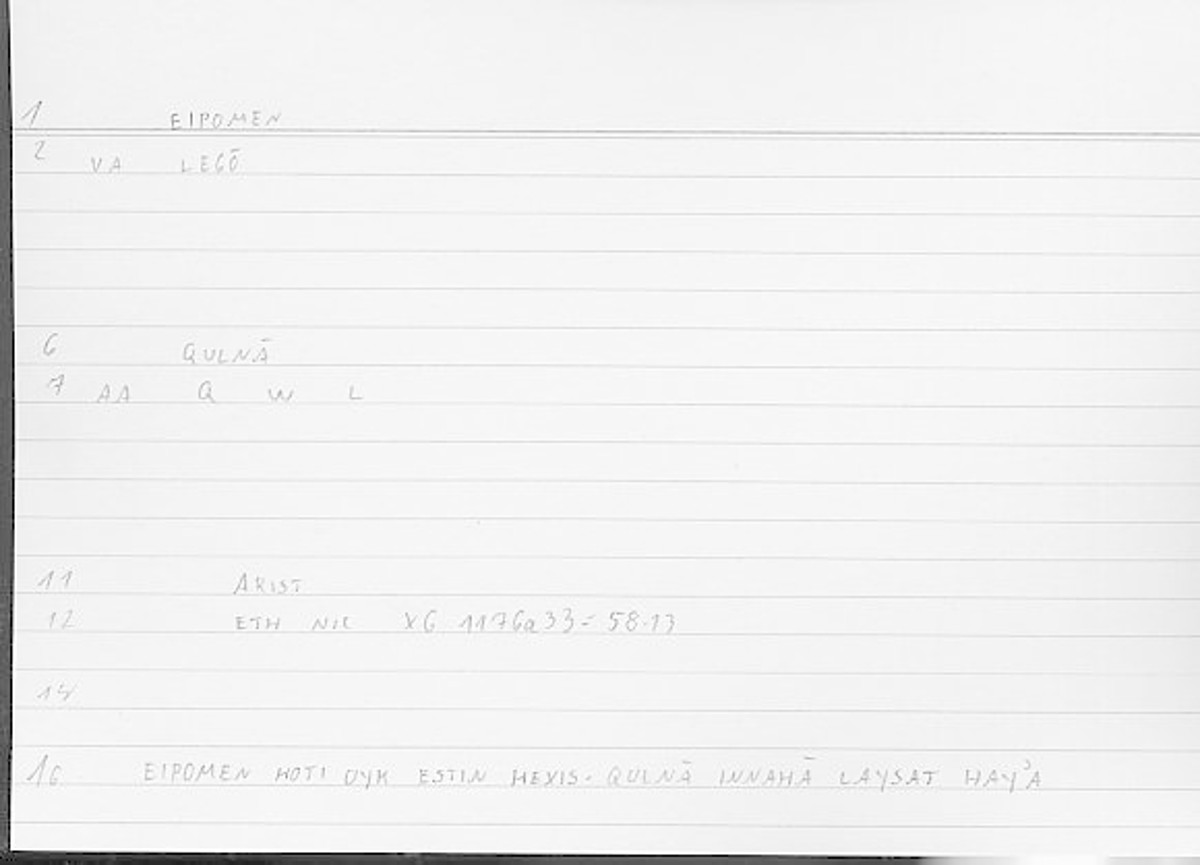 1 EIPOMEN
2 VA LEGŌ
6 QULNĀ
7 AA Q W L
11 ARIST
12 ETH NIC X6 1176a33 = 58.13
15
16 EIPOMEN HOTI OYK ESTIN HEXIS - QULNĀ INNAHĀ LAYSAT HAYʾA